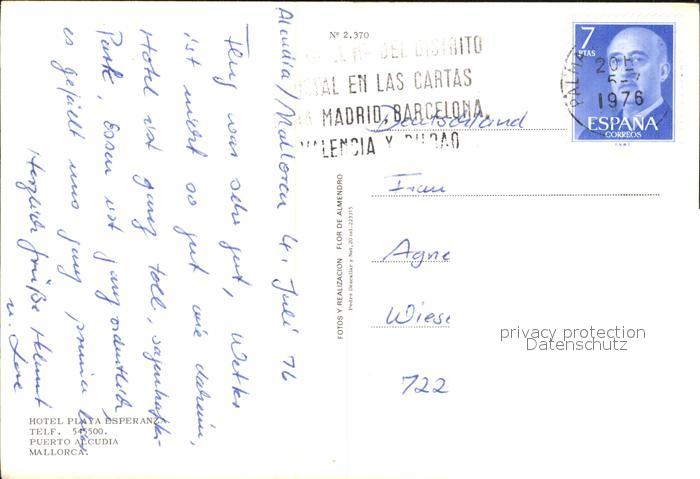 Alcudia/Mallorca 4. Juli 76
Flug war sehr gut, Wetter
ist nicht so gut wie daheim,
Hotel ist ganz toll, sagenhafter
Park, Essen ist ganz ordentlich,
es gefällt uns ganz prima hier
Herzliche Grüße Helmut
u. Lore
HOTEL PLAYA ESPERANZA
TELF. 545500.
PUERTO ALCUDIA
MALLORCA.
Nº 2.370
FOTOS Y REALIZACION FLOR DE ALMENDRO
DEL DISTRITO
EN LAS CARTAS
MADRID, BARCELONA,
VALENCIA Y BILBAO
7
PTAS
ESPAÑA
CORREOS
1976
Deutschland
Frau
Agne
Wiese
722
privacy protection
Datenschutz